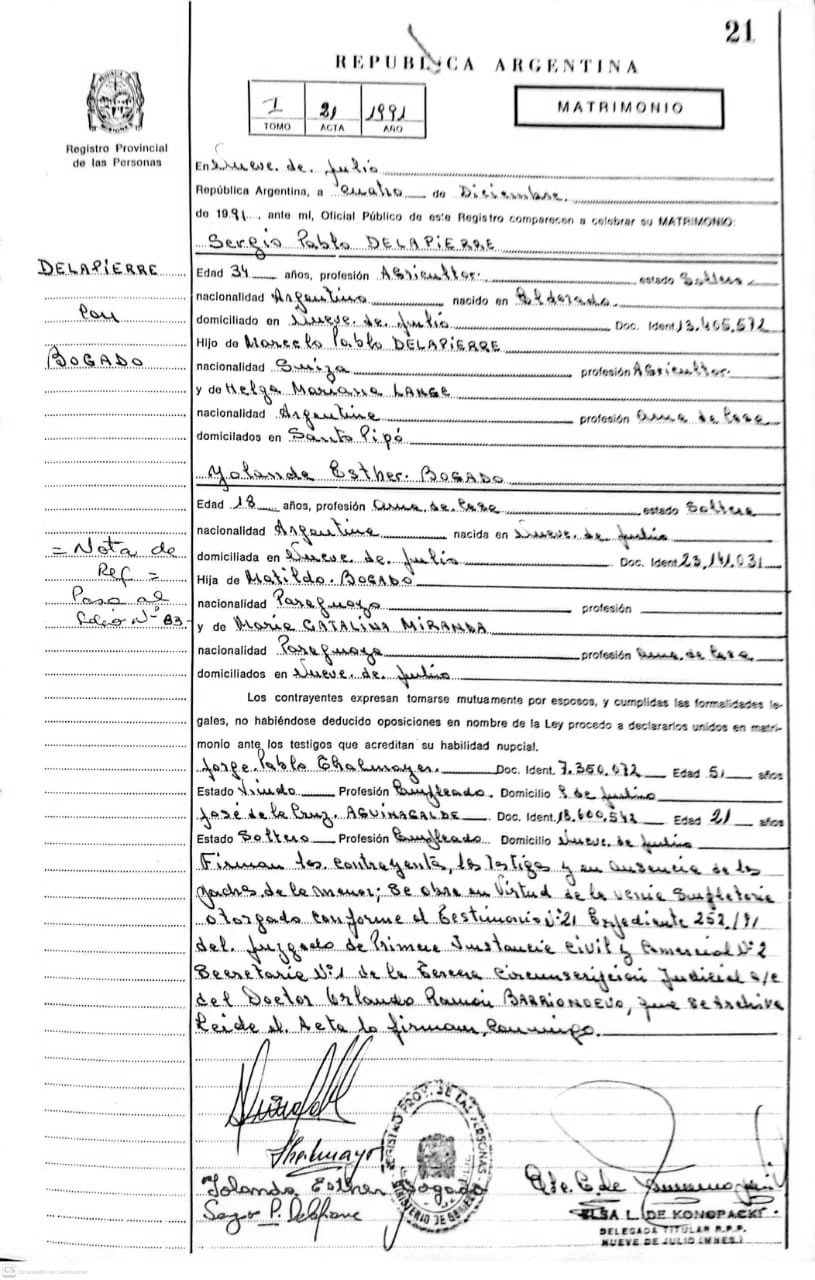 21
REPUBLICA ARGENTINA
I 21 1991
TOMO ACTA AÑO
MATRIMONIO
Registro Provincial
de las Personas
En Nueve de Julio
República Argentina, a cuatro de Diciembre
de 1991, ante mí, Oficial Público de este Registro comparecen a celebrar su MATRIMONIO:
Sergio Pablo DELAPIERRE
DELAPIERRE
con
BOGADO
Edad 34 años, profesión Agricultor estado Soltero
nacionalidad Argentino nacido en Eldorado
domiciliado en Nueve de Julio Doc. Ident 13.405.572
Hijo de Marcelo Pablo DELAPIERRE
nacionalidad Suiza profesión Agricultor
y de Helga Mariana LANGE
nacionalidad Argentina profesión ama de casa
domicilados en Santo Pipó
Yolanda Esther BOGADO
Edad 18 años, profesión ama de casa estado Soltera
nacionalidad Argentina nacida en Nueve de Julio
domiciliada en Nueve de Julio Doc. Ident. 23,141.031
Hija de Matildo BOGADO
nacionalidad Paraguaya profesión
y de María CATALINA MIRANDA
nacionalidad Paraguaya profesión ama de casa
domiciliados en Nueve de Julio
= Nota de
Ref =
Pasa al
folio Nº 83-
Los contrayentes expresan tomarse mutuamente por esposos, y cumplidas las formalidades le-
gales, no habiéndose deducido oposiciones en nombre de la Ley procedo a declararlos unidos en matri-
monio ante los testigos que acreditan su habilidad nupcial.
Jorge Pablo Thalmayer Doc. Ident. 7.350.072 Edad 51 años
Estado Viudo Profesión Empleado Domicilio 9 de Julio
José de la Cruz AGUINAGALDE Doc. Ident. 18.600.542 Edad 21 años
Estado Soltero Profesión Empleado Domicilio Nueve de Julio
Firman los contrayentes, los testigos y en ausencia de los
padres de la menor; se obra en virtud de la venia supletoria
otorgado conforme el Testimonio Nº 21 Expediente 252/91
del Juzgado de Primera Instancia Civil y Comercial Nº 2
Secretaría Nº 1 de la Tercera Circunscripción Judicial a/c
del Doctor Orlando Ramón BARRIONUEVO, que se archiva
Leida el Acta lo firman conmigo.
Thalmayer
Yolanda Esther Bogado
Sergio P. Delapierre
REGISTRO PROV. DE LAS PERSONAS
MINISTERIO DE GOBIERNO
ELSA L. DE KONOPACKI
DELEGADA TITULAR R.P.P.
NUEVE DE JULIO (MNES.)
CS Escaneado con CamScanner